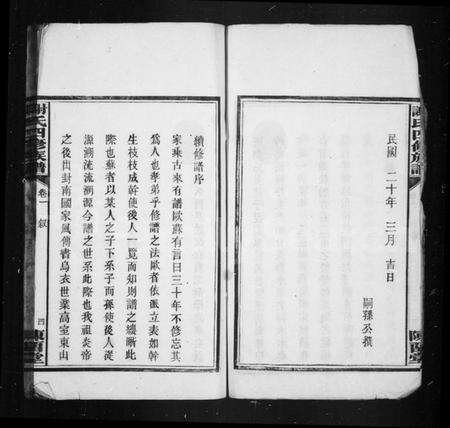 民國二十年三月吉日
嗣孫公撰
謝氏四修族譜
續修譜序
家乘古來有譜歐蘇有言曰三十年不修忘其
為人也孝弟乎修譜之法歐者依派立表如幹
生枝枝成幹使後人一覽而知則譜之纘斷此
際也蘇者以某人之子下系子而孫使後人從
源溯流流溯源今譜之世系此際也我祖炎帝
之後出封南國家風傳書烏衣世業高室東山
謝氏四修族譜
卷一
敘
四
陳留堂